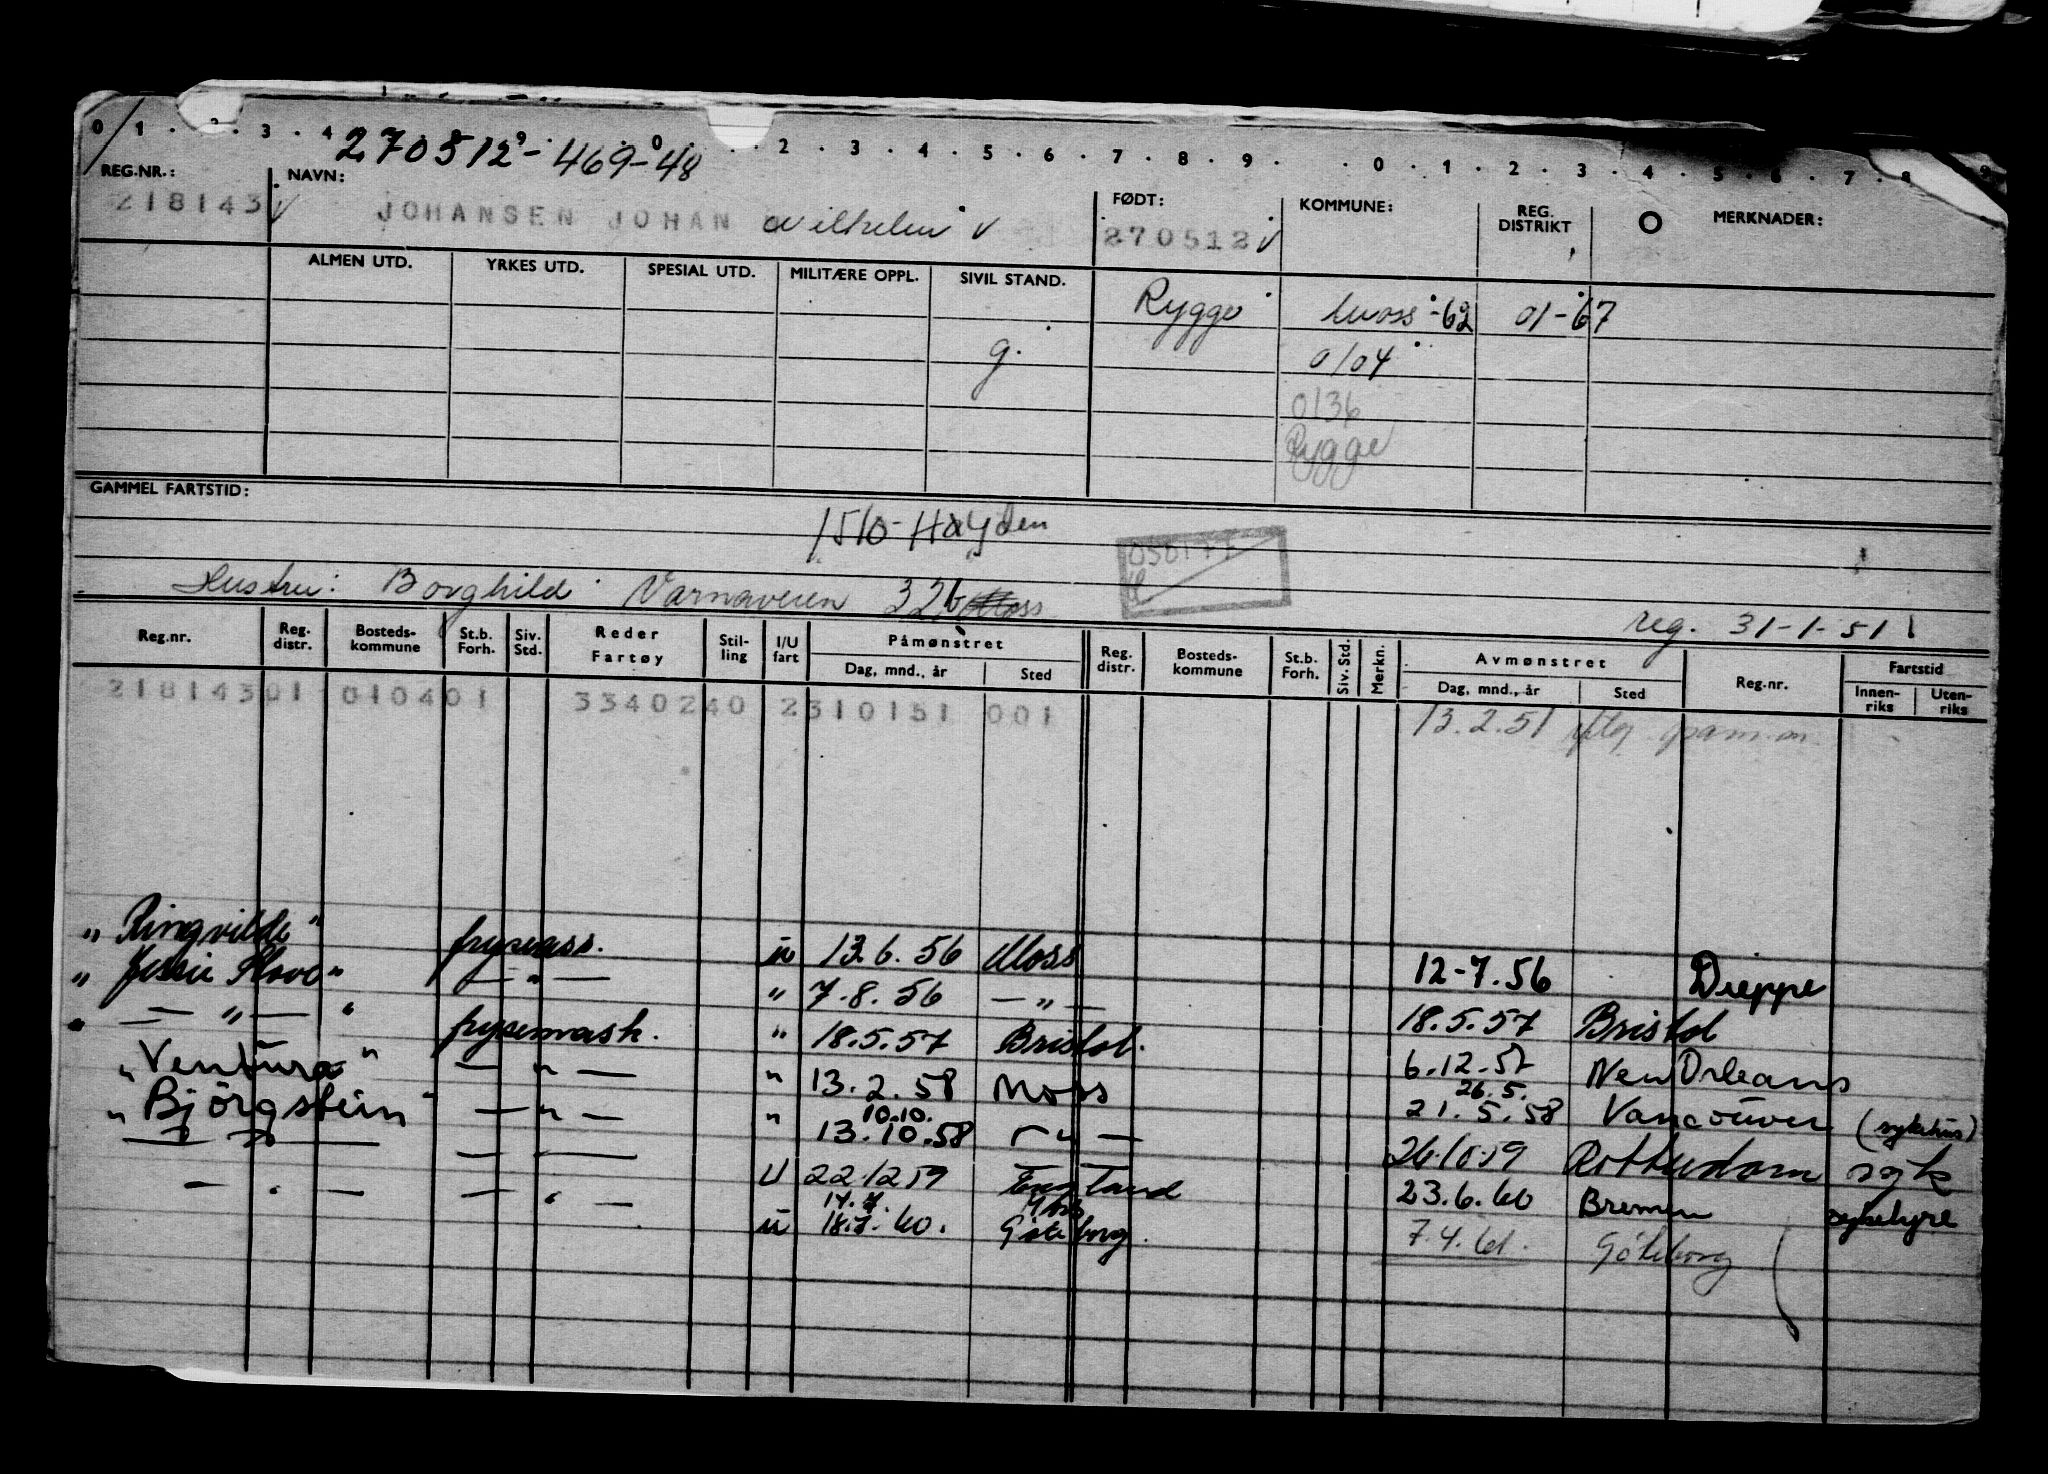 0 1 . 2 . 3 . 4 9 0 2 . 3 . 4 . 5 . 6 . 7 . 8 . 9 . . 0 . 1 . 2 . 3 . 4 . 5 . 6 . 7 . 8 9
270512 - 469-48
REG.NR.: NAVN: FØDT: KOMMUNE: REG. DISTRIKT O MERKNADER:
218143 JOHANSEN JOHAN Wilhelm 270512
ALMEN UTD. YRKES UTD. SPESIAL UTD. MILITÆRE OPPL. SIVIL STAND.
Rygge Moss -62 01-67
g. 0104
0136
Rygge
GAMMEL FARTSTID:
Hayden
050177
Hustru: Borghild Varnaveien 32b Moss
reg. 31-1-51
Reg.nr. Reg. distr. Bosteds- kommune St.b. Forh. Siv. Std. Reder Fartøy Stil- ling I/U fart Påmønstret Reg. distr. Bosteds- kommune St.b. Forh. Siv. Std. Merkn. Avmønstret Reg.nr. Fartstid
Dag, mnd., år Sted Dag, mnd., år Sted Innen- riks Uten- riks
21814301 010401 3340240 2310151 001 13.2.51
"Ringvilde" fryseass. u 13.6.56 Moss 12-7.56 Dieppe
"Jessie Stove" — " — " 7.8.56 — " — 18.5.57 Bristol
" — " — " frysemask. " 18.5.57 Bristol. 6.12.57 New Orleans
"Ventura" — " — " 13.2.58 Moss 26.5. 21.5.58 Vancouver (sykehus)
"Björgstein" — " — " 10.10. 13.10.58 — " — 26.10.59 Rotterdam syk
U 22.12.59 England 23.6.60 Bremen
— " — — " — u 18.7.60. Göteborg. 7.4.61. Göteborg